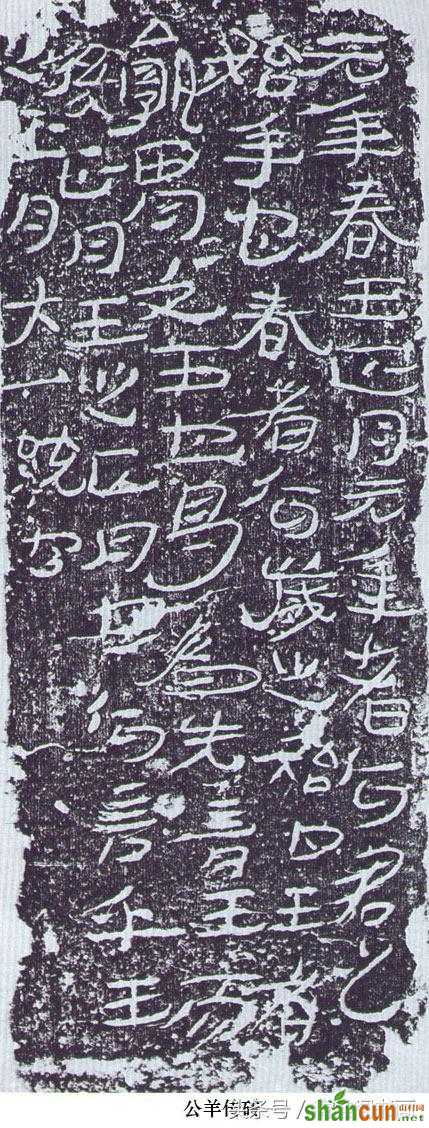 元年春王正月元年者何君之
始年也春者何歲之始也王者
孰胃=之王也曷為先言王而
後正月王之正月也何言乎王
之正月大一統也
公羊传砖
shancun
山村网
.net